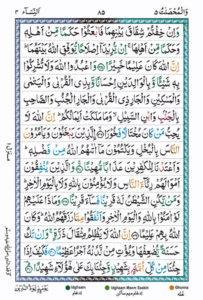 وَالْمُحْصَنٰتُ ٥
٨٥
النِّسَآء ٤
وَاِنْ خِفْتُمْ شِقَاقَ بَيْنِهِمَا فَابْعَثُوْا حَكَمًا مِّنْ اَهْلِهٖ
وَحَكَمًا مِّنْ اَهْلِهَا ۚ اِنْ يُّرِيْدَآ اِصْلَاحًا يُّوَفِّقِ اللّٰهُ بَيْنَهُمَا ؕ
اِنَّ اللّٰهَ كَانَ عَلِيْمًا خَبِيْرًا ۝ وَاعْبُدُوا اللّٰهَ وَلَا تُشْرِكُوْا
بِهٖ شَيْـًٔا وَّبِالْوَالِدَيْنِ اِحْسَانًا وَّبِذِى الْقُرْبٰى وَالْيَتٰمٰى
وَالْمَسٰكِيْنِ وَالْجَارِ ذِى الْقُرْبٰى وَالْجَارِ الْجُنُبِ وَالصَّاحِبِ
بِالْجَنْۢبِ وَابْنِ السَّبِيْلِ ۙ وَمَا مَلَكَتْ اَيْمَانُكُمْ ؕ اِنَّ اللّٰهَ لَا
يُحِبُّ مَنْ كَانَ مُخْتَالًا فَخُوْرًا ۝ الَّذِيْنَ يَبْخَلُوْنَ وَيَاْمُرُوْنَ
النَّاسَ بِالْبُخْلِ وَيَكْتُمُوْنَ مَآ اٰتٰىهُمُ اللّٰهُ مِنْ فَضْلِهٖ ؕ
وَاَعْتَدْنَا لِلْكٰفِرِيْنَ عَذَابًا مُّهِيْنًا ۝ وَالَّذِيْنَ يُنْفِقُوْنَ
اَمْوَالَهُمْ رِئَآءَ النَّاسِ وَلَا يُؤْمِنُوْنَ بِاللّٰهِ وَلَا بِالْيَوْمِ الْاٰخِرِ ؕ
وَمَنْ يَّكُنِ الشَّيْطٰنُ لَهٗ قَرِيْنًا فَسَآءَ قَرِيْنًا ۝ وَمَاذَا عَلَيْهِمْ
لَوْ اٰمَنُوْا بِاللّٰهِ وَالْيَوْمِ الْاٰخِرِ وَاَنْفَقُوْا مِمَّا رَزَقَهُمُ اللّٰهُ ؕ وَكَانَ
اللّٰهُ بِهِمْ عَلِيْمًا ۝ اِنَّ اللّٰهَ لَا يَظْلِمُ مِثْقَالَ ذَرَّةٍ ۚ وَاِنْ تَكُ
حَسَنَةً يُّضٰعِفْهَا وَيُؤْتِ مِنْ لَّدُنْهُ اَجْرًا عَظِيْمًا ۝ فَكَيْفَ اِذَا
جِئْنَا مِنْ كُلِّ اُمَّةٍ ۢ بِشَهِيْدٍ وَّجِئْنَا بِكَ عَلٰى هٰٓؤُلَآءِ شَهِيْدًا ۝
Ighaam
Ighaam Meem Saakin
Ghunna